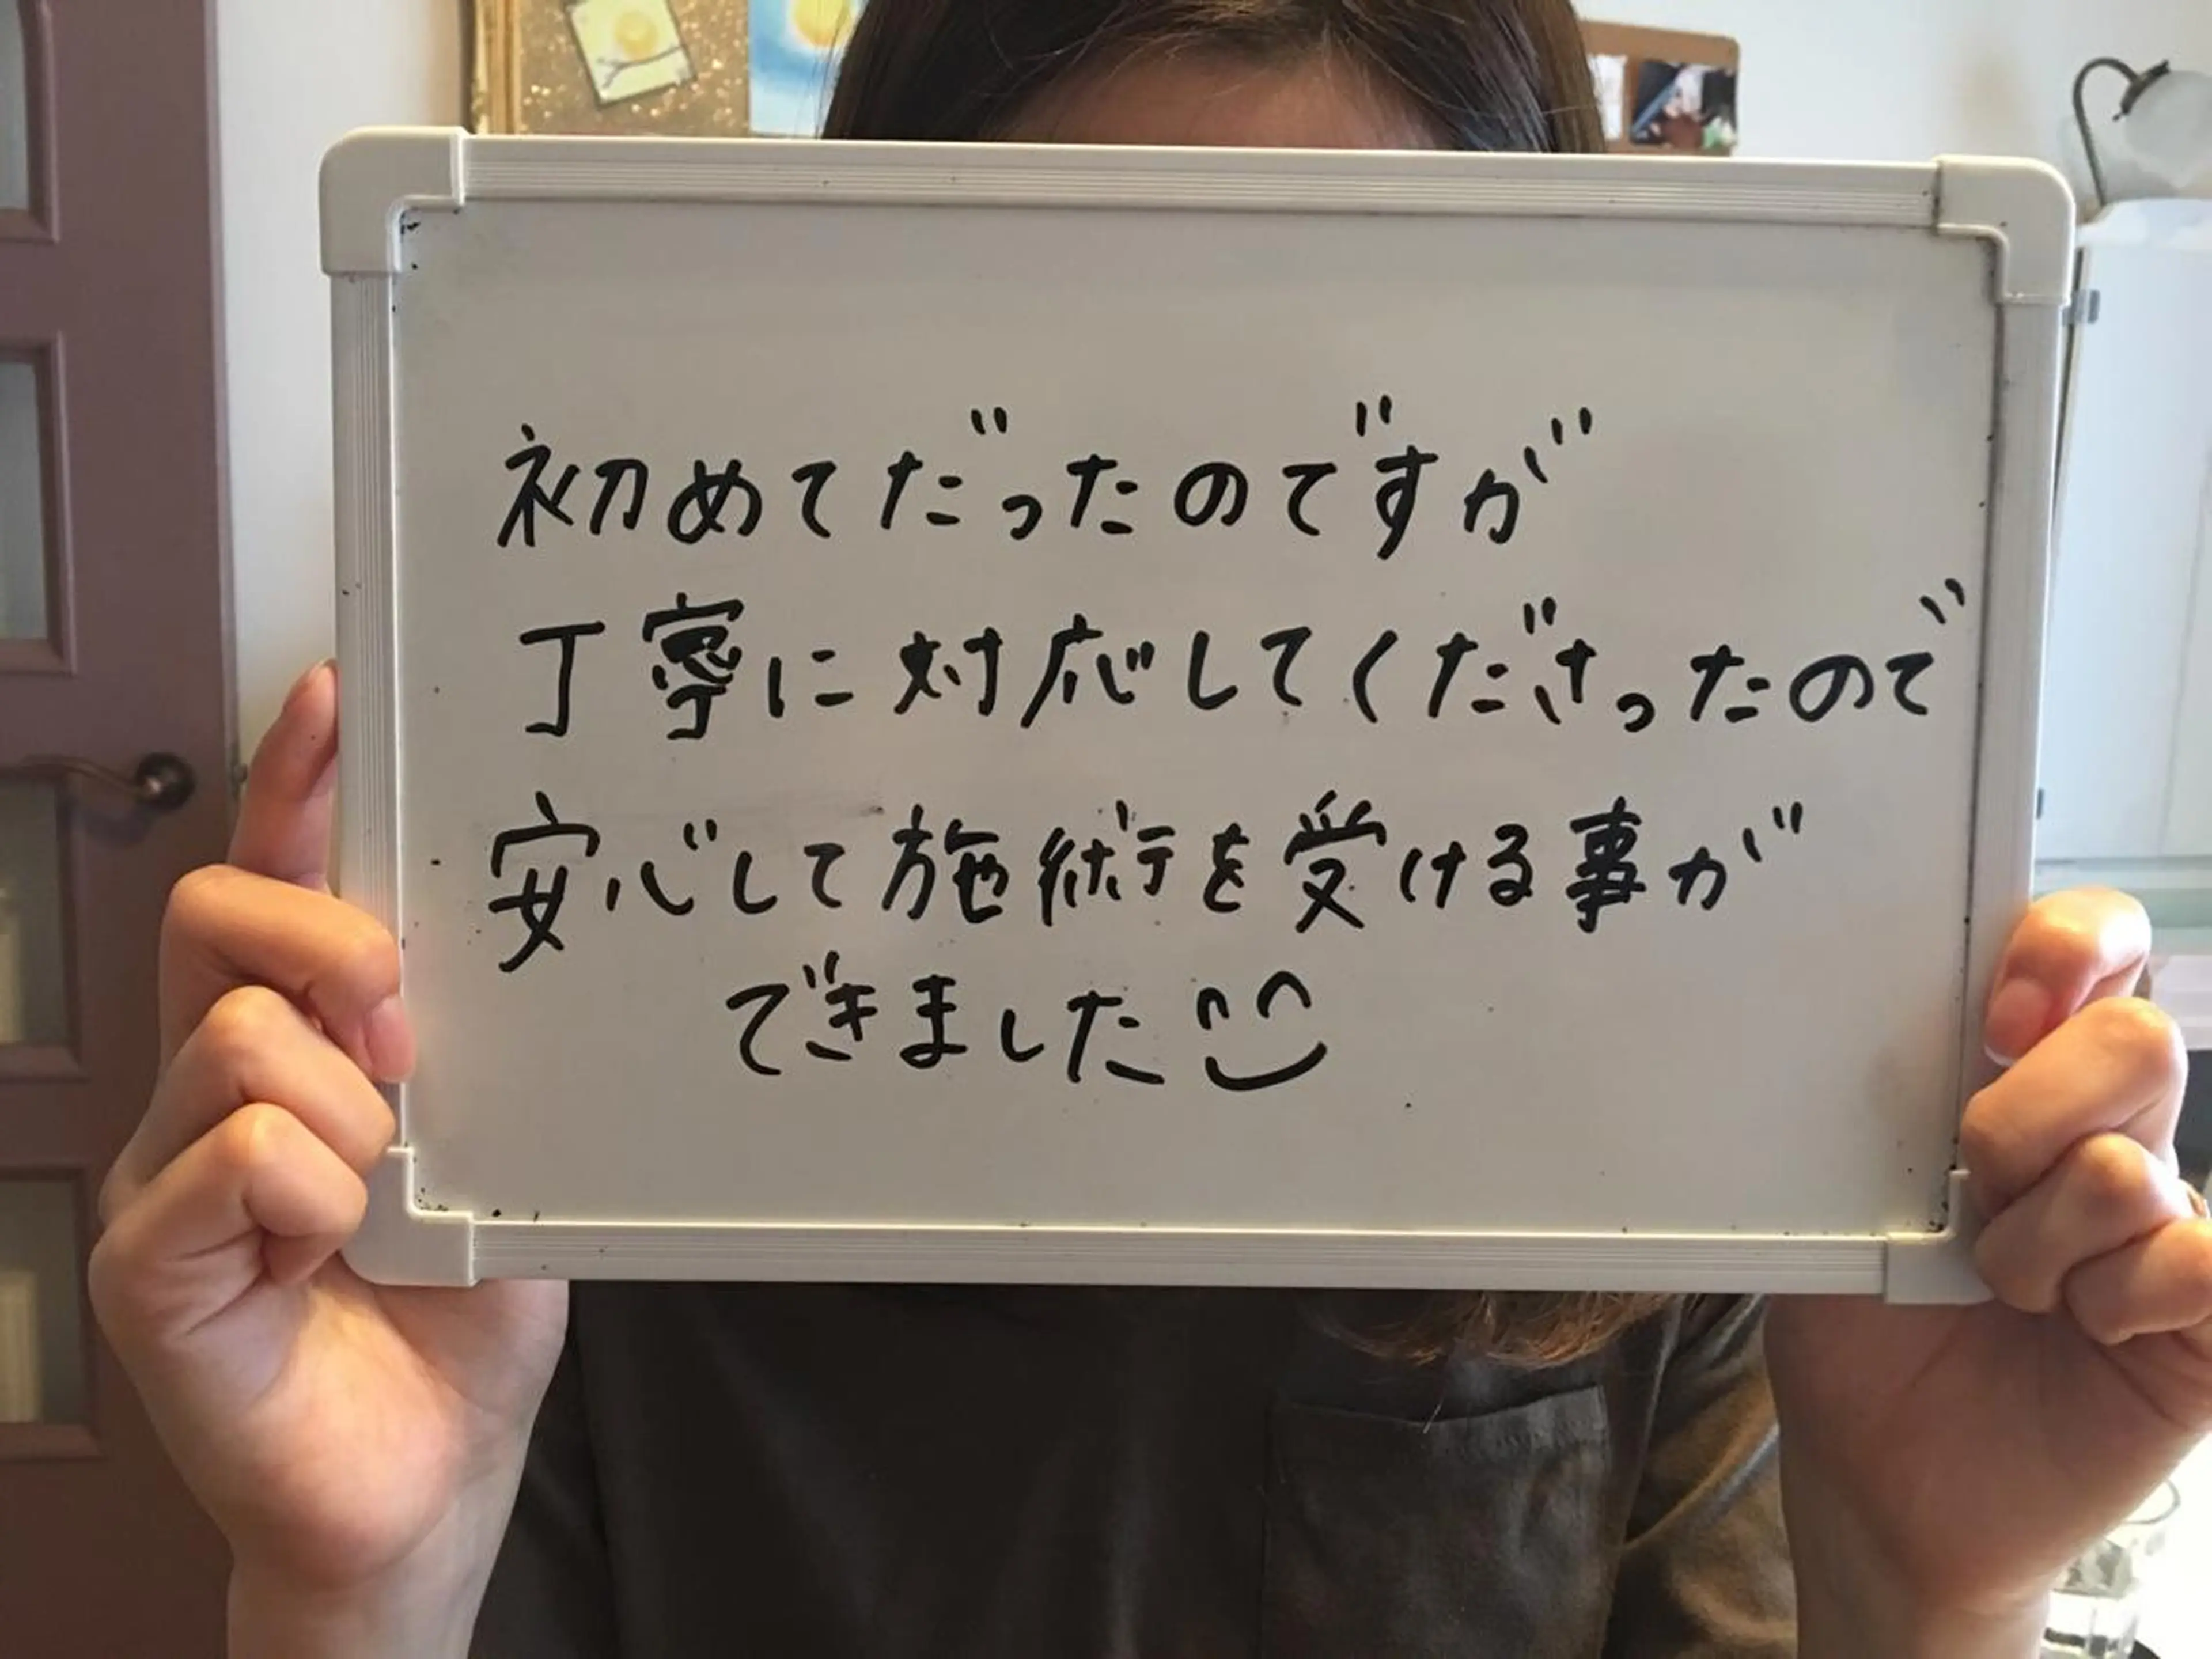 初めてだったのですが
丁寧に対応してくださったので
安心して施術を受ける事が
できました